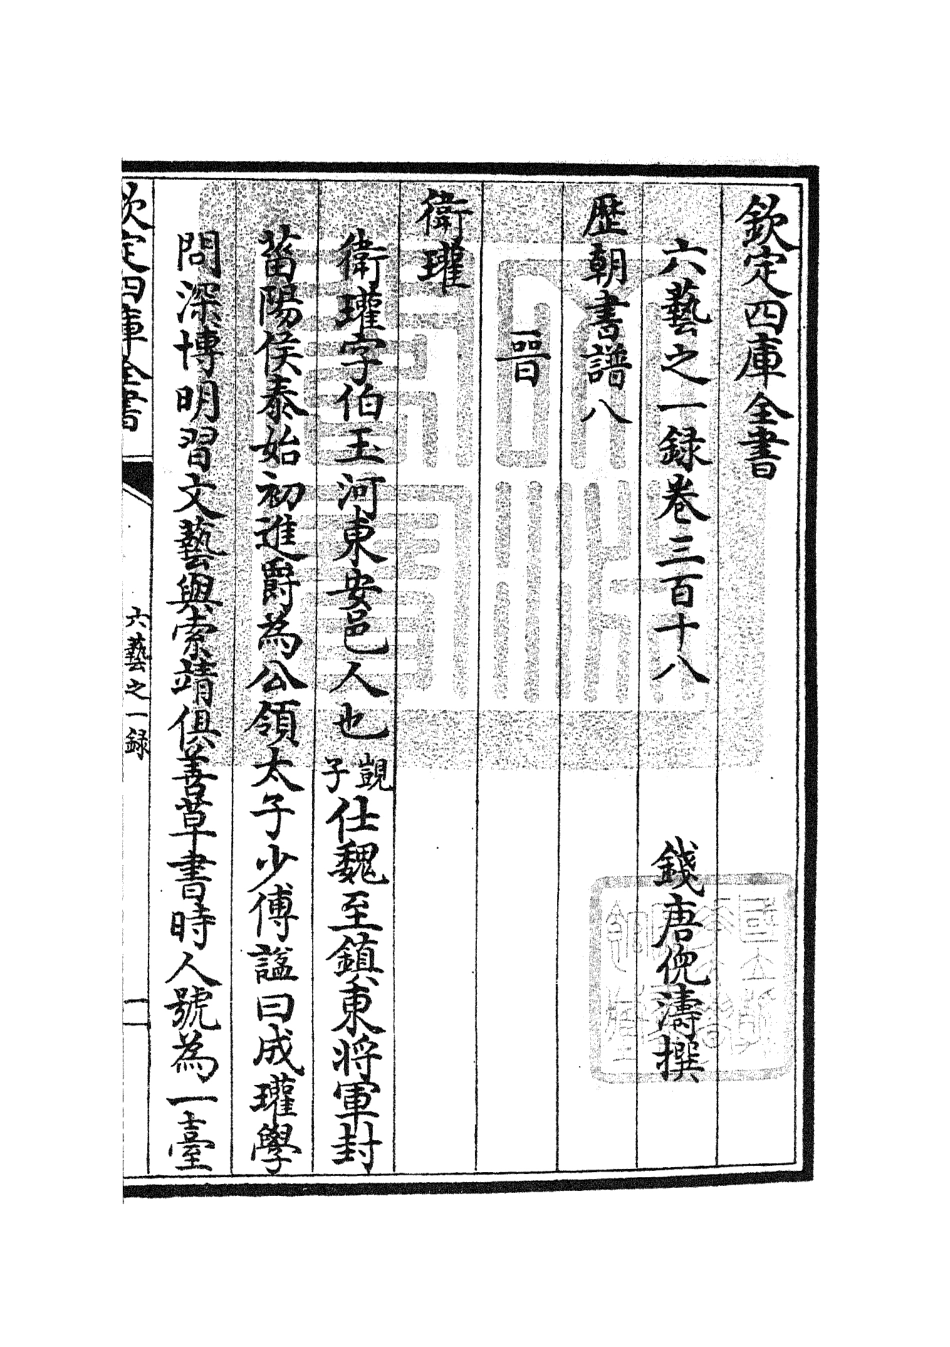 欽定四庫全書
六藝之一録卷三百十八
錢唐倪濤撰
歴朝書譜八
晉
衛瓘
衛瓘字伯玉河東安邑人也覬子仕魏至鎮東將軍封
菑陽侯泰始初進爵為公領太子少傅諡曰成瓘學
問深博明習文藝與索靖俱善草書時人號為一臺
欽定四庫全書
六藝之一録
一